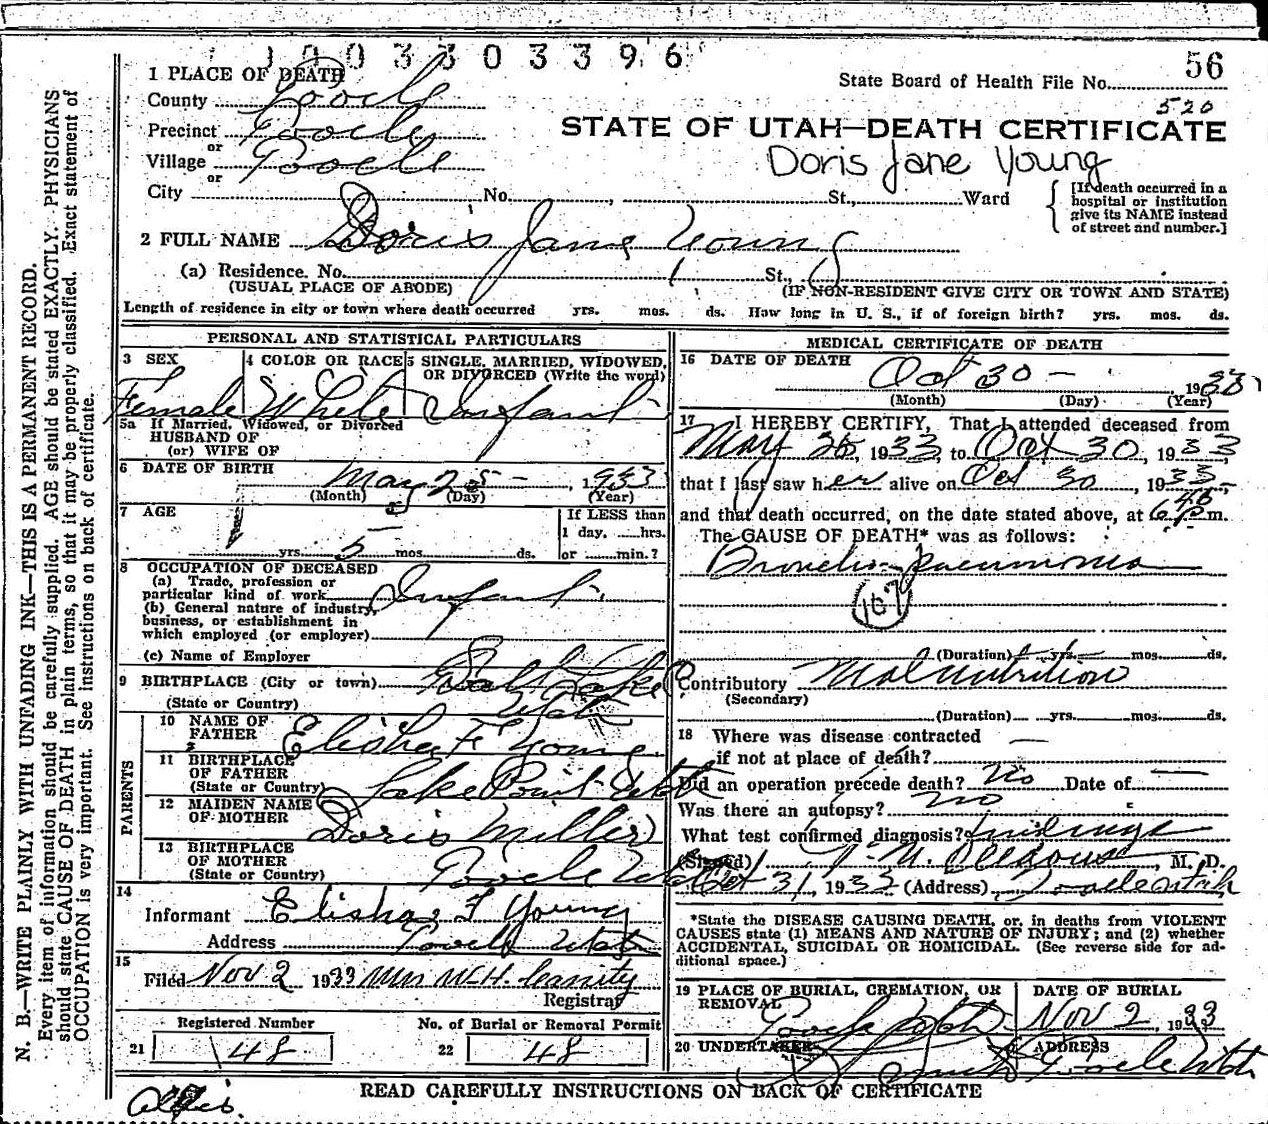 1003303396
56
1 PLACE OF DEATH
State Board of Health File No.
520
County Tooele
Precinct Tooele
or
STATE OF UTAH—DEATH CERTIFICATE
Village Tooele
or
Doris Jane Young
City No. , St., Ward
[If death occurred in a
hospital or institution
give its NAME instead
of street and number.]
2 FULL NAME Doris Jane Young
(a) Residence. No. St.,
(USUAL PLACE OF ABODE) (IF NON-RESIDENT GIVE CITY OR TOWN AND STATE)
Length of residence in city or town where death occurred yrs. mos. ds. How long in U. S., if of foreign birth? yrs. mos. ds.
PERSONAL AND STATISTICAL PARTICULARS
3 SEX 4 COLOR OR RACE 5 SINGLE, MARRIED, WIDOWED,
OR DIVORCED (Write the word)
Female White Infant
5a If Married, Widowed, or Divorced
HUSBAND OF
(or) WIFE OF
6 DATE OF BIRTH May 25 - , 1933
(Month) (Day) (Year)
7 AGE
If LESS than
1 day, hrs.
yrs. 5 mos. ds. or min.?
8 OCCUPATION OF DECEASED
(a) Trade, profession or
particular kind of work Infant
(b) General nature of industry,
business, or establishment in
which employed (or employer)
(c) Name of Employer
9 BIRTHPLACE (City or town) Salt Lake
(State or Country) Utah
PARENTS
10 NAME OF
FATHER Elisha F Young
11 BIRTHPLACE
OF FATHER
(State or Country) Lake Point Utah
12 MAIDEN NAME
OF MOTHER Doris Miller
13 BIRTHPLACE
OF MOTHER
(State or Country) Tooele Utah
14
Informant Elisha F Young
Address Tooele Utah
15
Filed Nov 2 1933
Registrar
Registered Number No. of Burial or Removal Permit
21 48 22 48
MEDICAL CERTIFICATE OF DEATH
16 DATE OF DEATH Oct 30 - 1933
(Month) (Day) (Year)
17 I HEREBY CERTIFY, That I attended deceased from
May 25, 1933, to Oct 30, 1933,
that I last saw her alive on Oct 30, 1933,
and that death occurred, on the date stated above, at 6 45 p m.
The CAUSE OF DEATH* was as follows:
Broncho-pneumonia
107
(Duration) yrs. mos. ds.
Contributory Malnutrition
(Secondary)
(Duration) yrs. mos. ds.
18 Where was disease contracted —
if not at place of death?
Did an operation precede death? No Date of —
Was there an autopsy? no
What test confirmed diagnosis? findings
(Signed) M. D.
Oct 31, 1933 (Address) Tooele Utah
*State the DISEASE CAUSING DEATH, or, in deaths from VIOLENT
CAUSES state (1) MEANS AND NATURE OF INJURY; and (2) whether
ACCIDENTAL, SUICIDAL OR HOMICIDAL. (See reverse side for ad-
ditional space.)
19 PLACE OF BURIAL, CREMATION, OR
REMOVAL Tooele Utah
DATE OF BURIAL
Nov 2, 1933
20 UNDERTAKER ADDRESS
Tooele Utah
READ CAREFULLY INSTRUCTIONS ON BACK OF CERTIFICATE
N. B.—WRITE PLAINLY WITH UNFADING INK—THIS IS A PERMANENT RECORD.
Every item of information should be carefully supplied. AGE should be stated EXACTLY. PHYSICIANS
should state CAUSE OF DEATH in plain terms, so that it may be properly classified. Exact statement of
OCCUPATION is very important. See instructions on back of certificate.